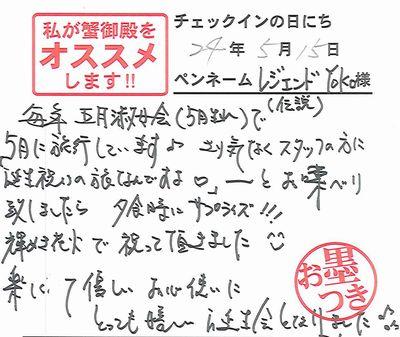 私が蟹御殿を
オススメ
します!!
チェックインの日にち
24年5月15日
ペンネーム レジェンドYoko様
(伝説)
毎年 五月淑女会(5月生れ)で
5月に旅行しています♪ さり気なくスタッフの方に
誕生祝いの旅なんですよ〜とお喋べり
致しましたら 夕食時にサプライズ!!!
輝めき花火で祝って頂きました
楽しくて優しいお心使いに
とっても嬉しい誕生会となりました♪
お墨つき